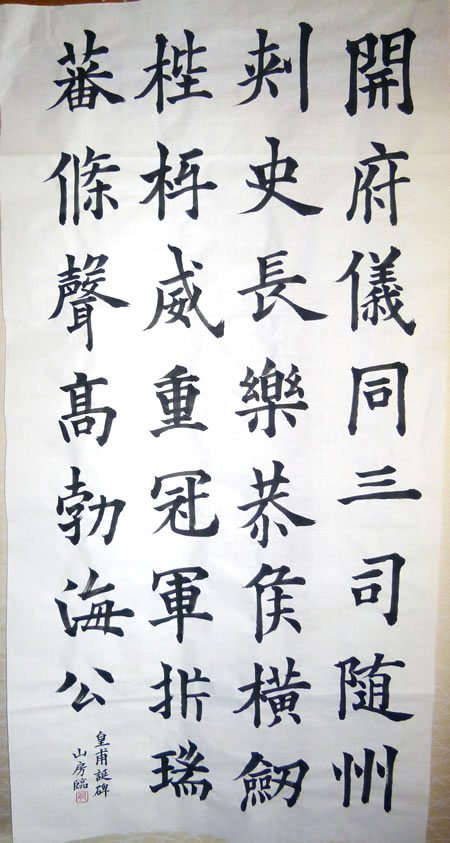 開府儀同三司随州
刾史長樂恭侯橫劒
梐枑威重冠軍折瑞
蕃條聲髙勃海公
皇甫誕碑
山房臨